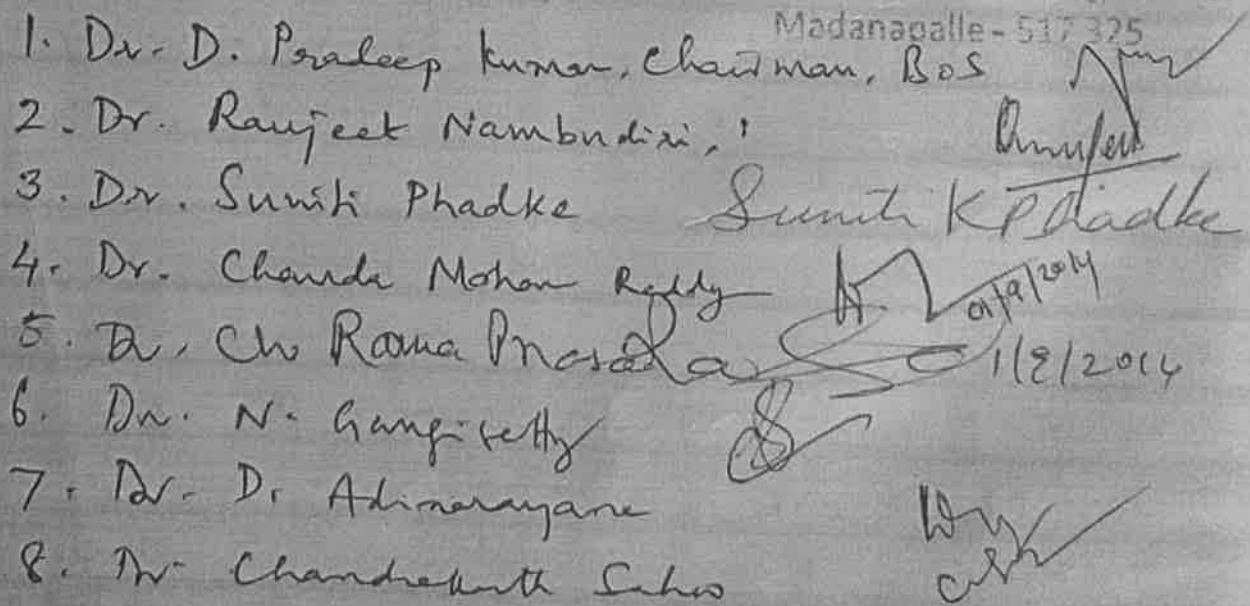 Madanapalle - 517 325
1. Dr. D. Pradeep Kumar, Chairman, BOS
2. Dr. Ranjeet Nambudiri,
3. Dr. Suniti Phadke Suniti K Phadke
4. Dr. Chanda Mohan Reddy 01/9/2014
5. Dr. Ch Rama Prasada 1/9/2014
6. Dr. N. Gangisetty
7. Dr. D. Adinarayana
8. Dr. Chandrakanth Sahoo